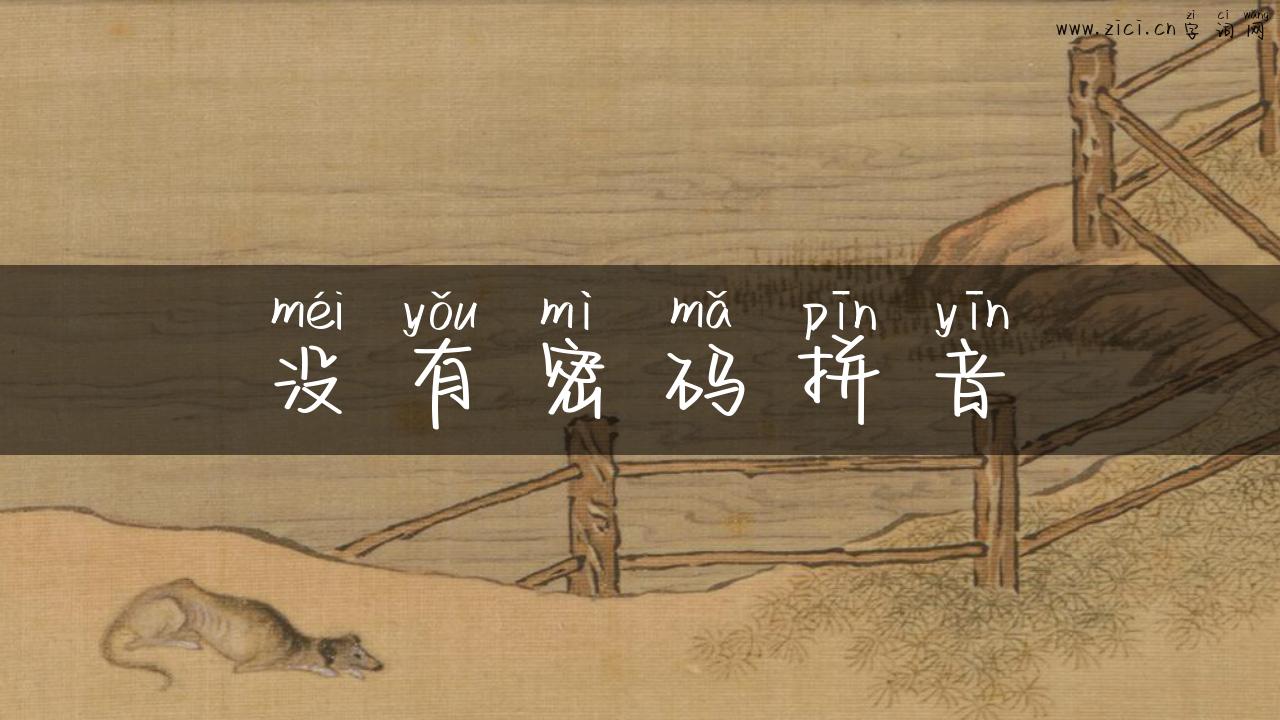 zì cí wǎng
www.zici.cn 字 词 网
méi yǒu mì mǎ pīn yīn
没 有 密 码 拼 音